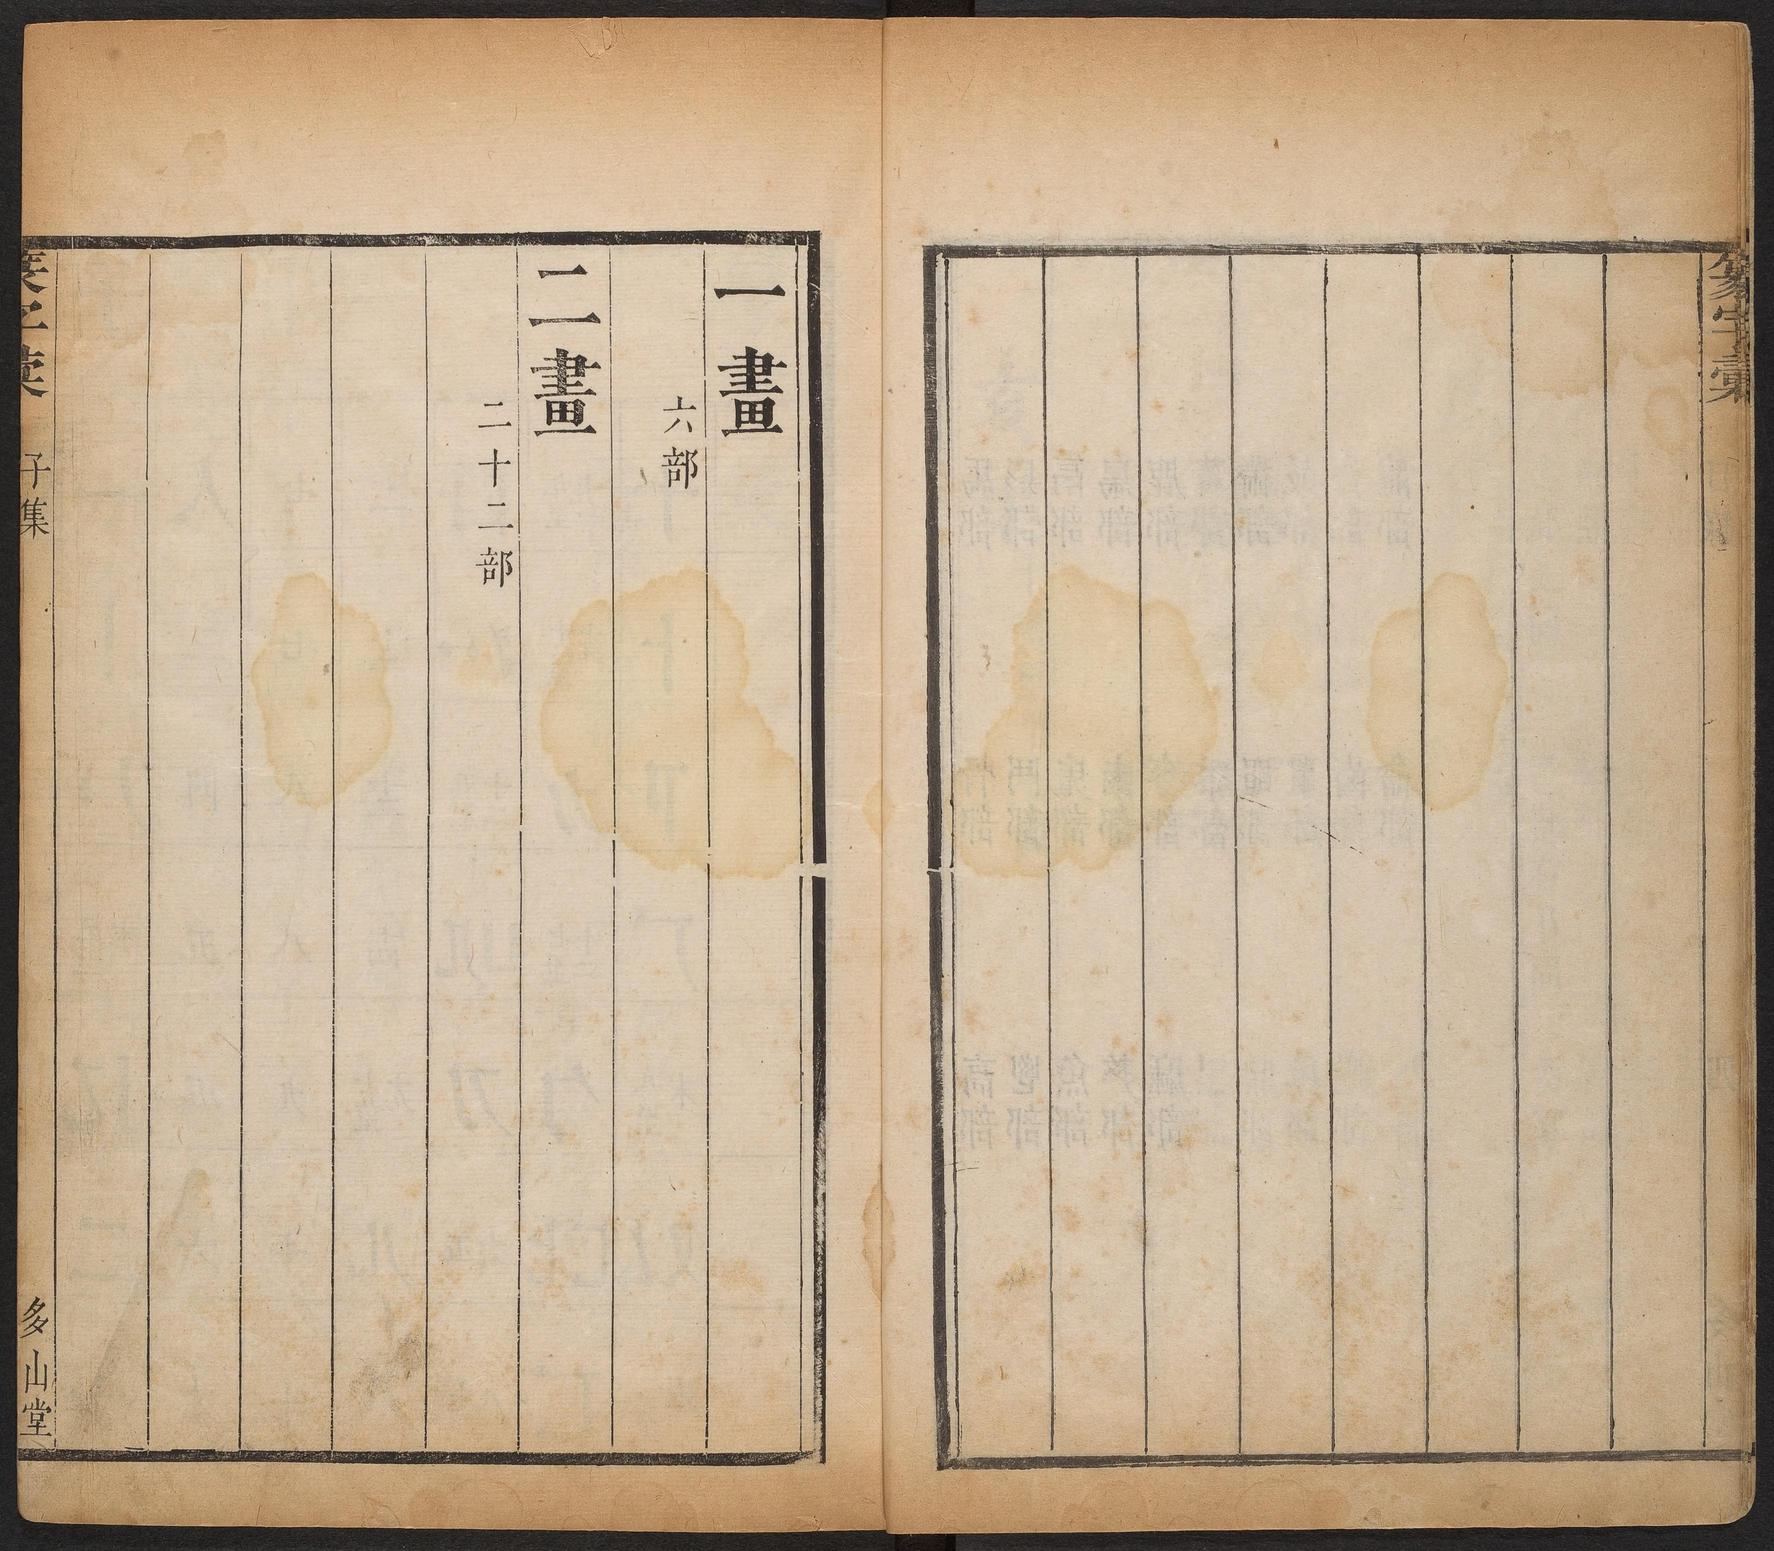 篆字彙
一畫
六部
二畫
二十二部
篆字彙 子集 多山堂